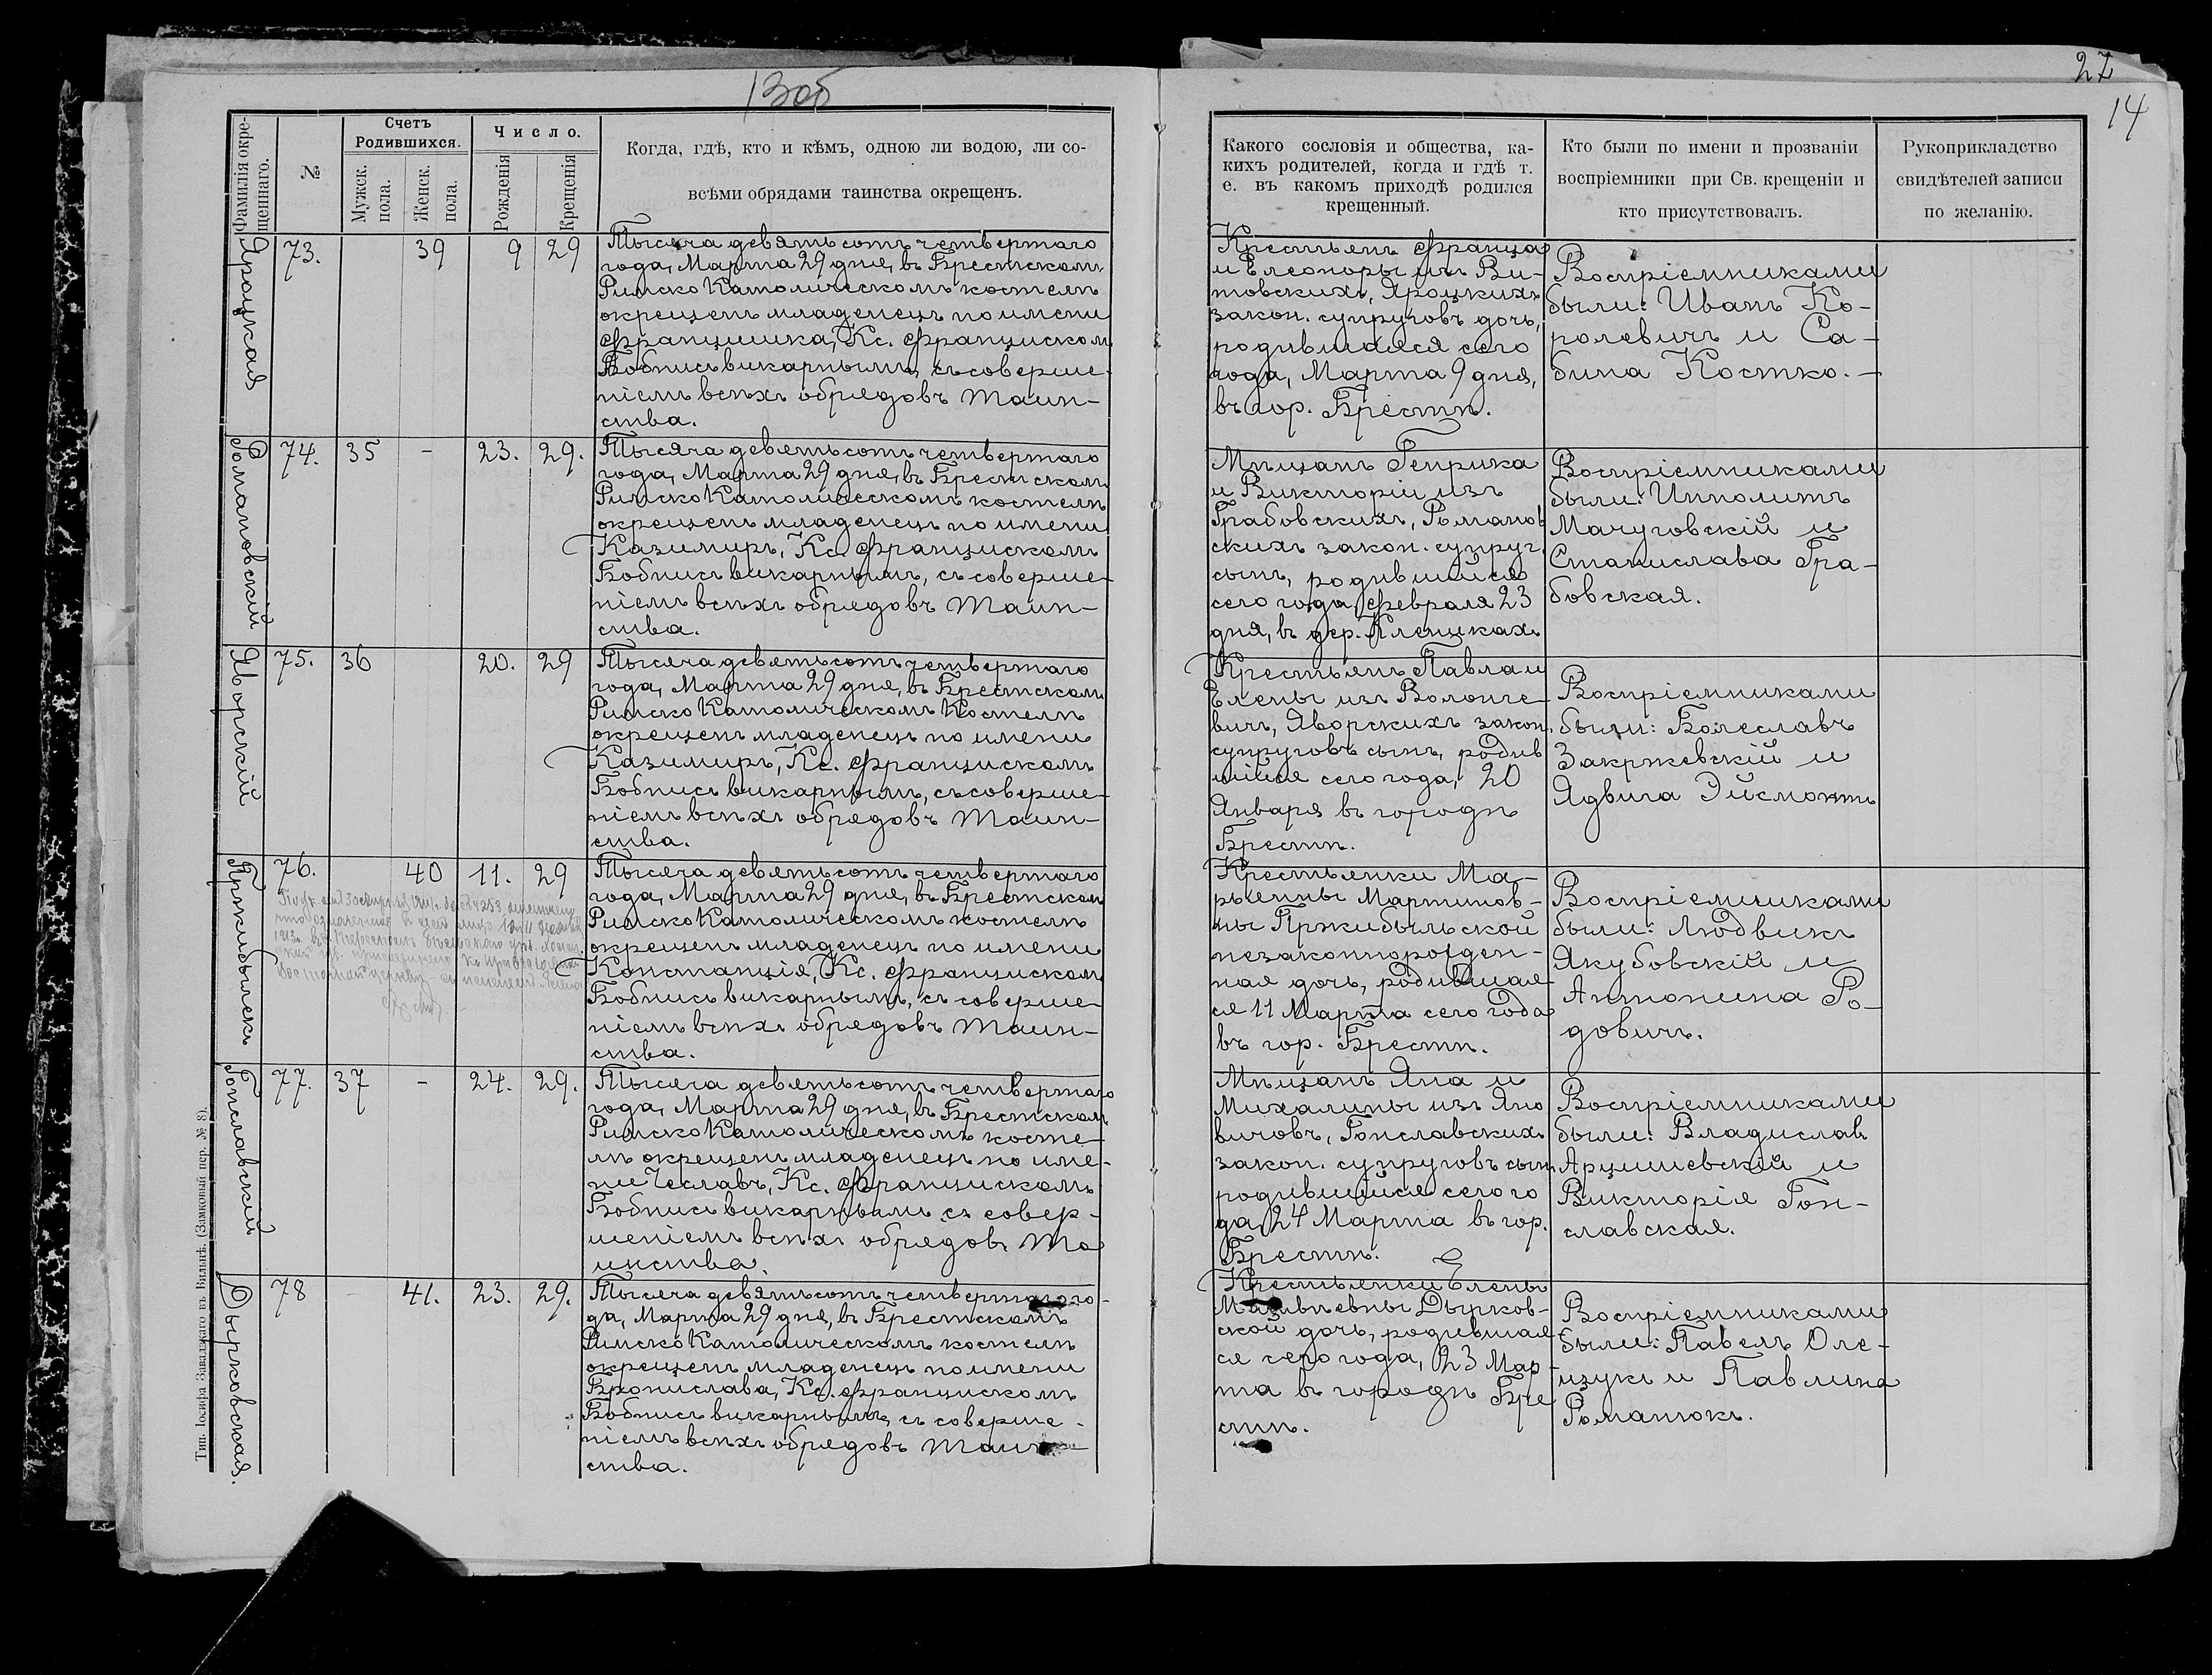 13об
27
14
Фамилія окре-
щеннаго.
№
Счетъ
Родившихся.
Мужск.
пола.
Женск.
пола.
Число.
Рожденія
Крещенія
Когда, гдѣ, кто и кѣмъ, одною ли водою, ли со-
всѣми обрядами таинства окрещенъ.
Какого сословія и общества, ка-
кихъ родителей, когда и гдѣ т.
е. въ какомъ приходѣ родился
крещенный.
Кто были по имени и прозваніи
воспріемники при Св. крещеніи и
кто присутствовалъ.
Рукоприкладство
свидѣтелей записи
по желанію.
Яроцкая
73.
39
9
29
Тысяча девятьсотъ четвертаго
года, Марта 29 дня, въ Брестскомъ
Римско Католическомъ костелѣ
окрещенъ младенецъ по имени
Францишка, Кс. Францискомъ
Бобнисъ викарнымъ, съ соверше-
ніемъ всѣхъ обрядовъ Таин-
ства.
Крестьянъ Франца
и Елеоноры изъ Ви-
товскихъ, Яроцкихъ
закон. супруговъ дочь,
родившаяся сего
года, Марта 9 дня,
въ гор. Брестѣ.
Воспріемниками
были: Иванъ Ко-
ролевичъ и Са-
бина Костко. —
Романовскій
74.
35
-
23.
29.
Тысяча девятьсотъ четвертаго
года, Марта 29 дня, въ Брестскомъ
Римско Католическомъ костелѣ
окрещенъ младенецъ по имени
Казимиръ, Кс. Францискомъ
Бобнисъ викарнымъ, съ соверше-
ніемъ всѣхъ обрядовъ Таин-
ства.
Мѣщанъ Генрика
и Викторіи изъ
Грабовскихъ, Романов
скихъ закон. супруг.
сынъ, родившійся
сего года Февраля 23
дня, въ дер. Клепкахъ
Воспріемниками
были: Ипполитъ
Мачуговскій и
Станислава Гра-
бовская.
Яворскій
75.
36
20.
29
Тысяча девятьсотъ четвертаго
года, Марта 29 дня, въ Брестскомъ
Римско Католическомъ Костелѣ
окрещенъ младенецъ по имени
Казимиръ, Кс. Францискомъ
Бобнисъ викарнымъ, съ соверше-
ніемъ всѣхъ обрядовъ Таин-
ства.
Крестьянъ Павла и
Елены изъ Волонце-
вичъ, Яворскихъ закон.
супруговъ сынъ, родив
шійся сего года, 20
Января въ городѣ
Брестѣ.
Воспріемниками
были: Болеславъ
Закржевскій и
Ядвига Эйсмонтъ
Пржибыльск
76.
40
11.
29
Тысяча девятьсотъ четвертаго
года, Марта 29 дня, въ Брестскомъ
Римско Католическомъ костелѣ
окрещенъ младенецъ по имени
Констанція, Кс. Францискомъ
Бобнисъ викарнымъ, съ соверше-
ніемъ всѣхъ обрядовъ Таин-
ства.
Крестьянки Ма-
рьянны Мартинов-
ны Пржибыльской
незаконнорожден-
ная дочь, родившая-
ся 11 Марта сего года
въ гор. Брестѣ.
Воспріемниками
были: Людвикъ
Якубовскій и
Антонина Ро-
довичъ.
Гонславскій
77.
37
-
24.
29.
Тысяча девятьсотъ четвертаго
года, Марта 29 дня, въ Брестскомъ
Римско Католическомъ косте-
лѣ окрещенъ младенецъ по име-
ни Чеславъ, Кс. Францискомъ
Бобнисъ викарнымъ съ совер-
шеніемъ всѣхъ обрядовъ Та
инства.
Мѣщанъ Яна и
Михалины изъ Яно
вичовъ, Гонславскихъ
закон. супруговъ сынъ
родившійся сего го
да, 24 Марта въ гор.
Брестѣ.
Воспріемниками
были: Владислав
Арцишевскій и
Викторія Гон-
славская.
Дырковская.
78
-
41.
23.
29.
Тысяча девятьсотъ четвертаго го-
да, Марта 29 дня, въ Брестскомъ
Римско Католическомъ костелѣ
окрещенъ младенецъ по имени
Бронислава, Кс. Францискомъ
Бобнисъ викарнымъ, съ соверше-
ніемъ всѣхъ обрядовъ Таин-
ства.
Крестьянки Елены
Дырков-
ской дочь, родившая-
ся сего года, 23 Мар-
та въ городѣ Бре
стѣ.
Воспріемниками
были: Павелъ Оле-
изукъ и Павлина
Романюкъ.
Тип. Іосифа Завадзкаго въ Вильнѣ. (Замковый пер. № 8).